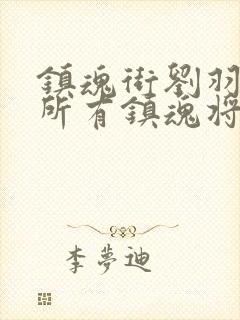 鎮魂街劉羽
所有鎮魂将
李夢迪